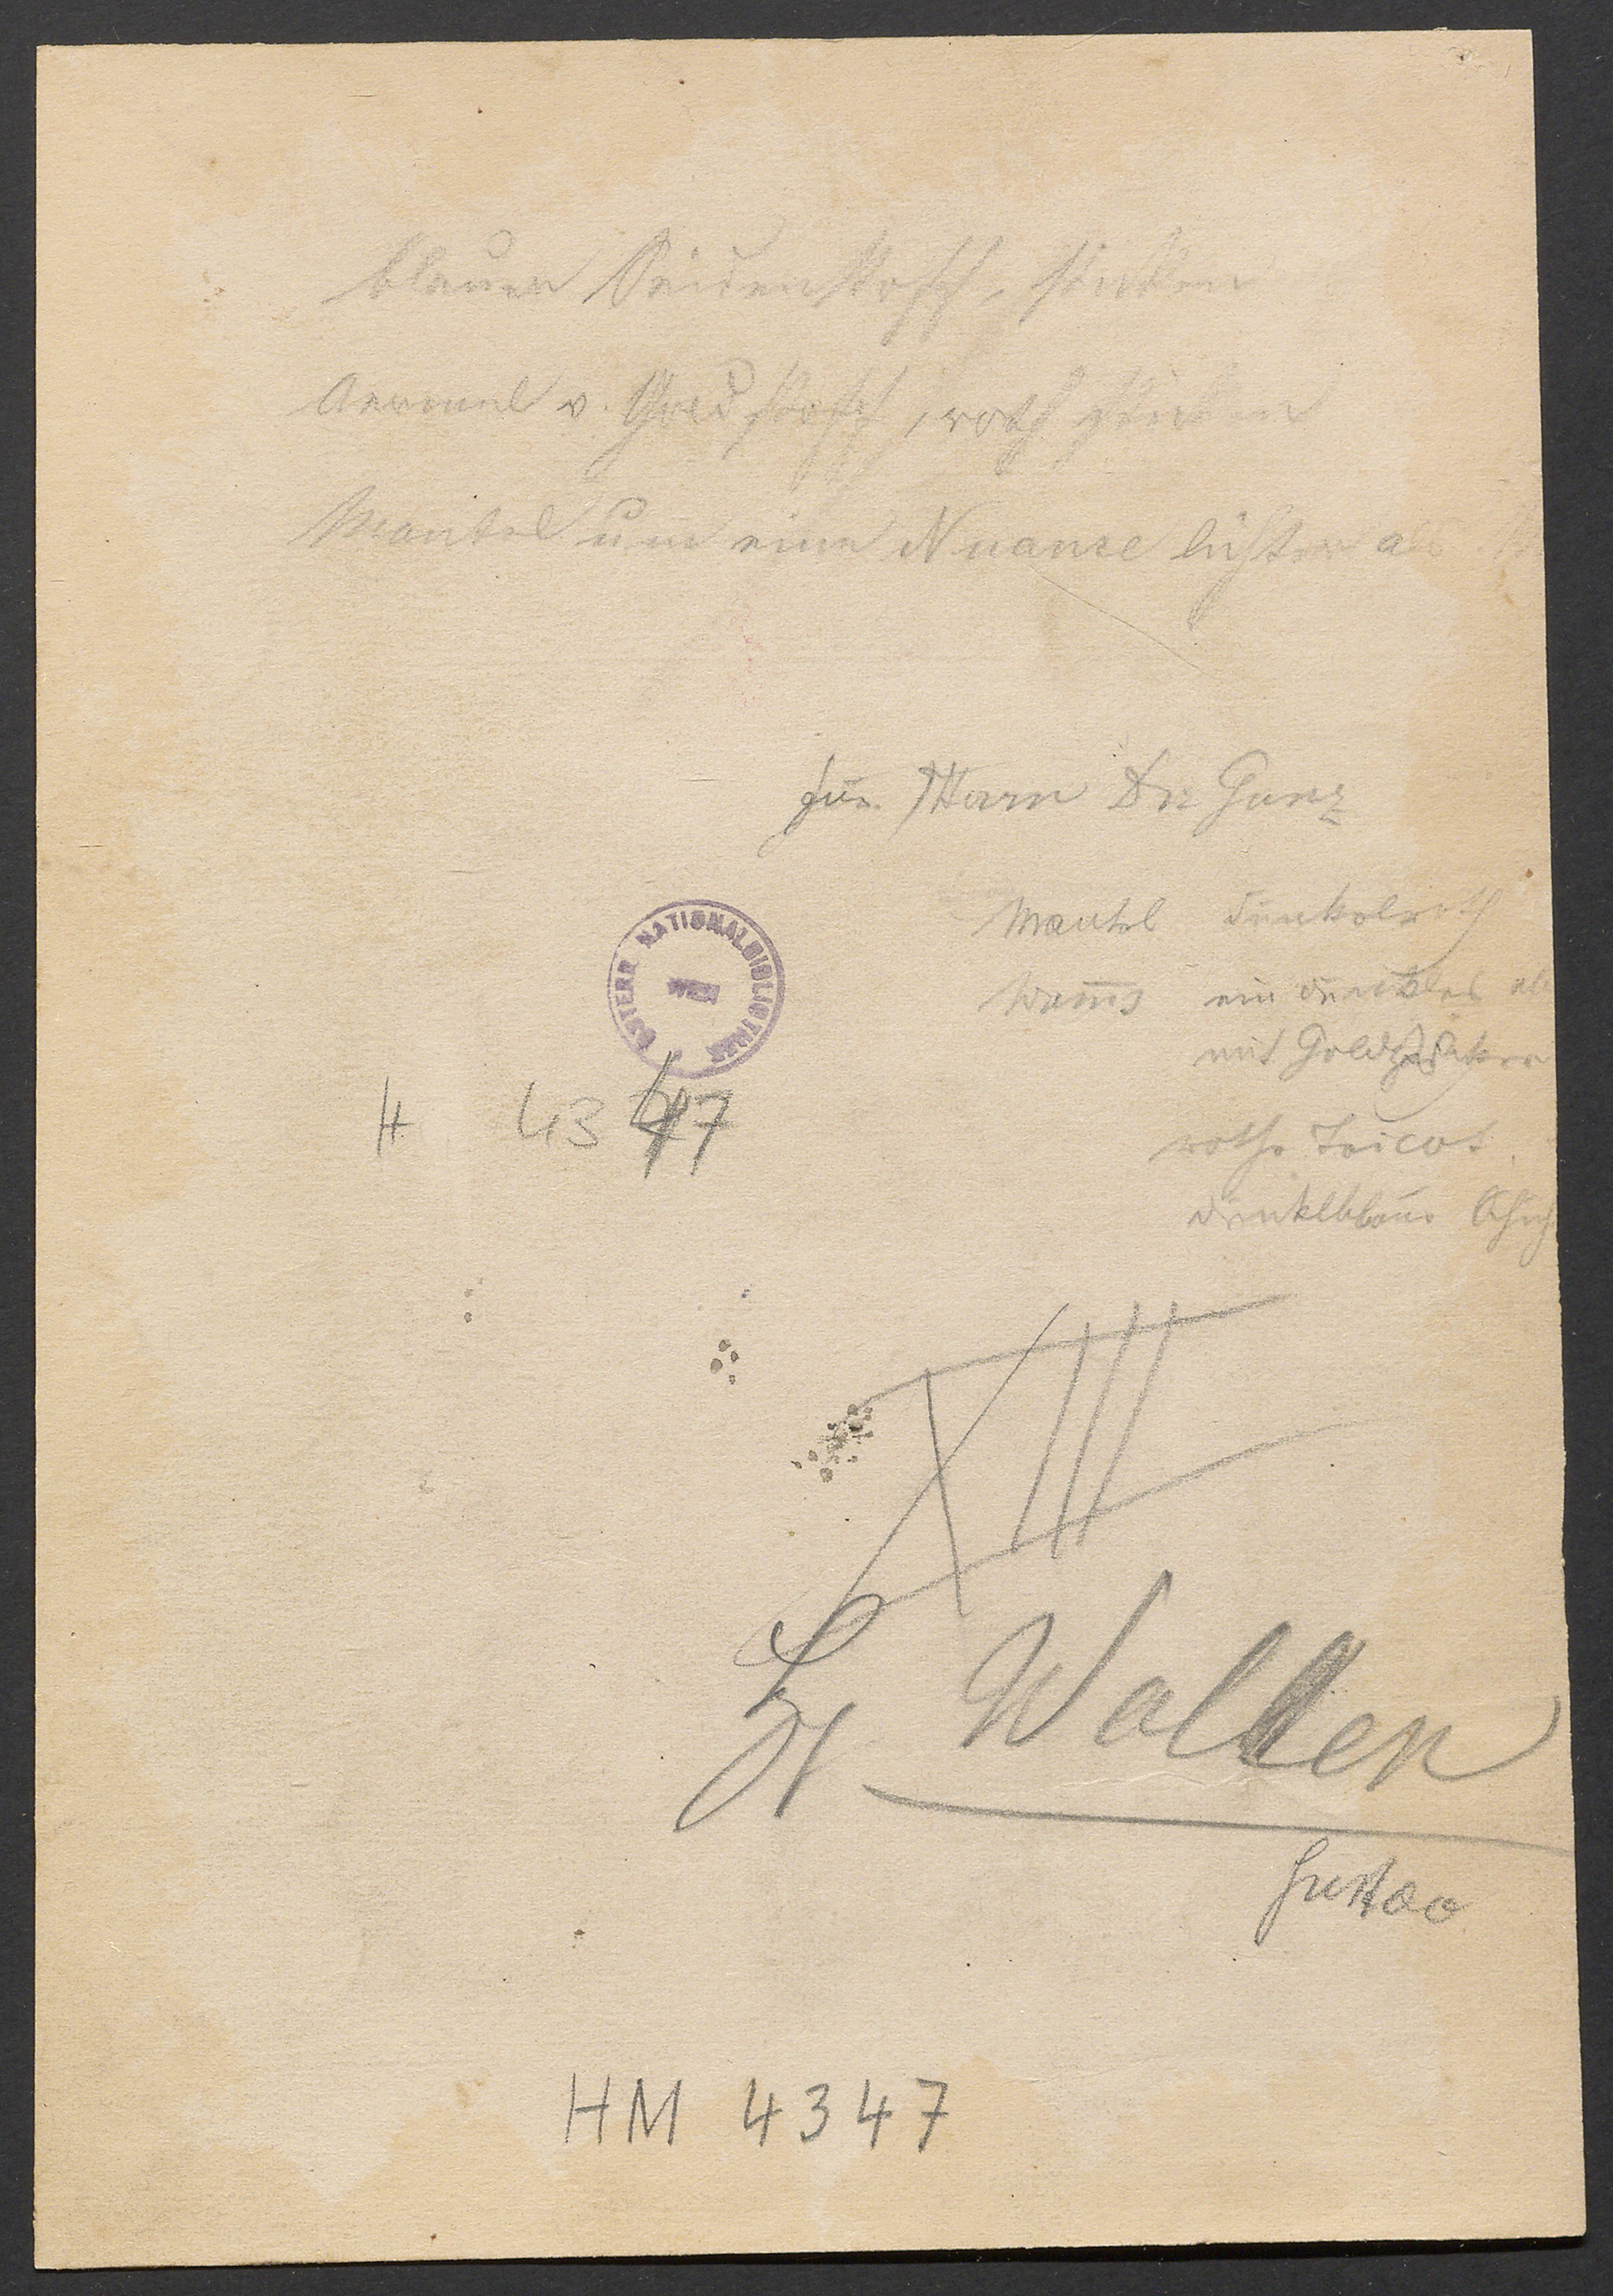 blauer Seidenstoff, sticken
Aermel v. Goldstoff, roth sticken
Mantel um eine Nuance lichter als
für Herrn Dr Ganz
Mantel dunkelroth
Wams ein dunkles
mit Gold
rothe Tricot
dunkelblaue Schuh
ÖSTERR. NATIONALBIBLIOTHEK
WIEN
H 4347
XIII
H Walter
Gustav
HM 4347